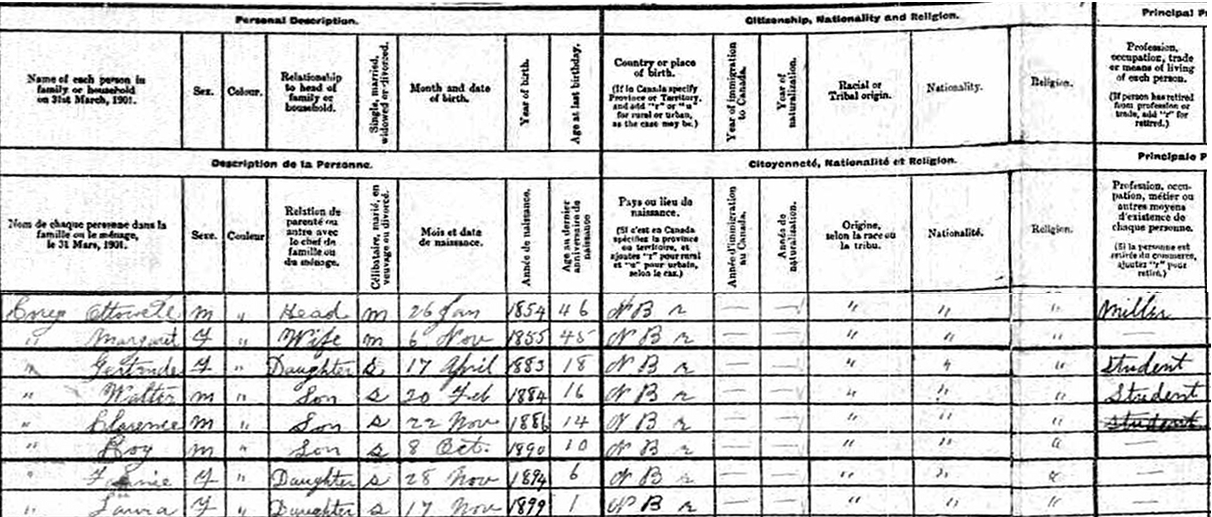 Personal Description. Citizenship, Nationality and Religion. Principal
Name of each person in family or household on 31st March, 1901. Sex. Colour. Relationship to head of family or household. Single, married, widowed or divorced. Month and date of birth. Year of birth. Age at last birthday. Country or place of birth. (If in Canada specify Province or Territory, and add "r" or "u" for rural or urban, as the case may be.) Year of immigration to Canada. Year of naturalization. Racial or Tribal origin. Nationality. Religion. Profession, occupation, trade or means of living of each person. (If person has retired from profession or trade, add "r" for retired.)
Description de la Personne. Citoyenneté, Nationalité et Religion. Principale P
Nom de chaque personne dans la famille ou le ménage, le 31 Mars, 1901. Sexe. Couleur Relation de parenté ou autre avec le chef de famille ou du ménage. Célibataire, marié, en veuvage ou divorcé. Mois et date de naissance. Année de naissance. Age au dernier anniversaire de naissance Pays ou lieu de naissance. (Si c'est en Canada spécifiez la province ou territoire, et ajoutez "r" pour rural et "u" pour urbain, selon le cas.) Année d'immigration au Canada. Année de naturalisation. Origine, selon la race ou la tribu. Nationalité. Religion. Profession, occupation, métier ou autres moyens d'existence de chaque personne. (Si la personne est retirée du commerce, ajoutez "r" pour retiré.)
m " Head m 26 Jan 1854 46 N B r — — " " " Miller
" Margaret F " Wife m 6 Nov 1855 45 N B r — — " " " —
" Gertrude F " Daughter s 17 April 1883 18 N B r — — " " " student
" Walter m " Son s 20 Feb 1884 16 N B r — — " " " Student
" Clarence m " Son s 22 Nov 1886 14 N B r — — " " " student
" Roy m " Son s 8 Oct. 1890 10 N B r — — " " " —
" Fannie F " Daughter s 28 Nov 1894 6 N B r — — " " " —
" Laura F " Daughter s 17 Nov 1899 1 N B r — — " " " —